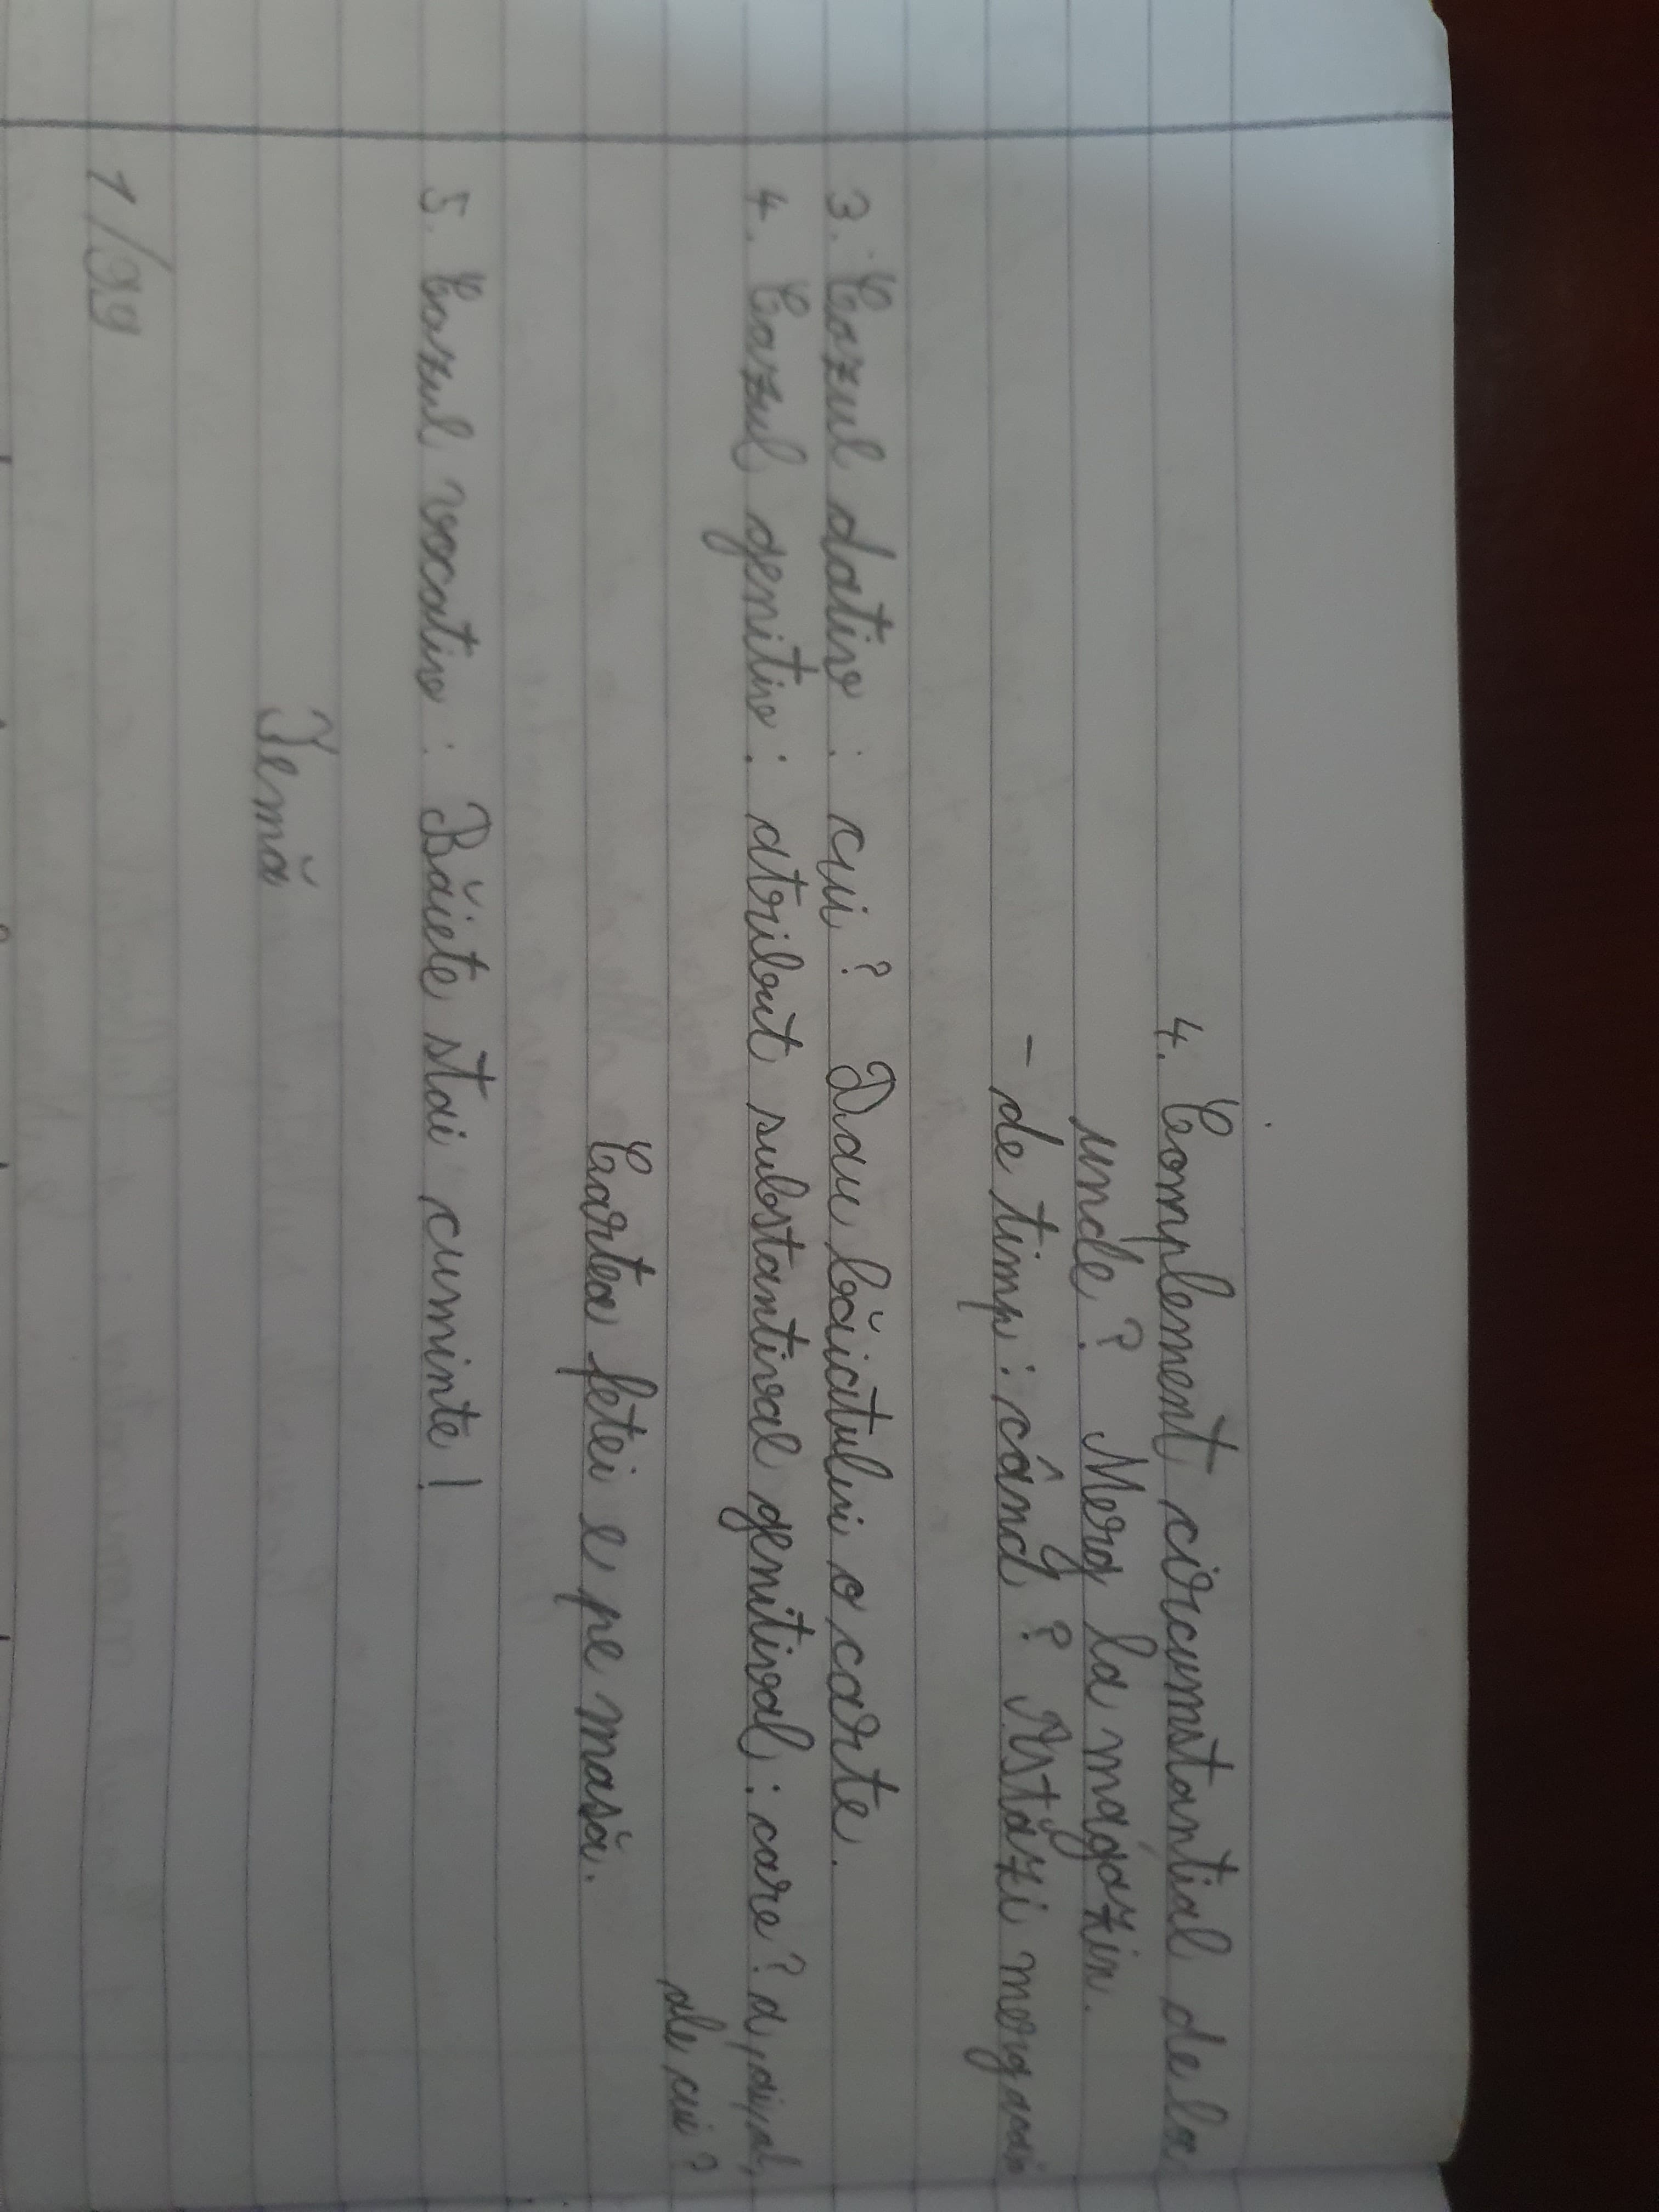 4. Complement circumstanțial de la
unde? Merg la magazin.
- de timp: când? Astăzi merg
3. Cazul dativ: cui? Dau băiatului o carte.
4. Cazul genitiv: atribut substantival genitival: care? a, ai, al,
ale cui?
Cartea fetei e pe masă.
5. Cazul vocativ: Băiete stai cuminte!
Temă
1/99